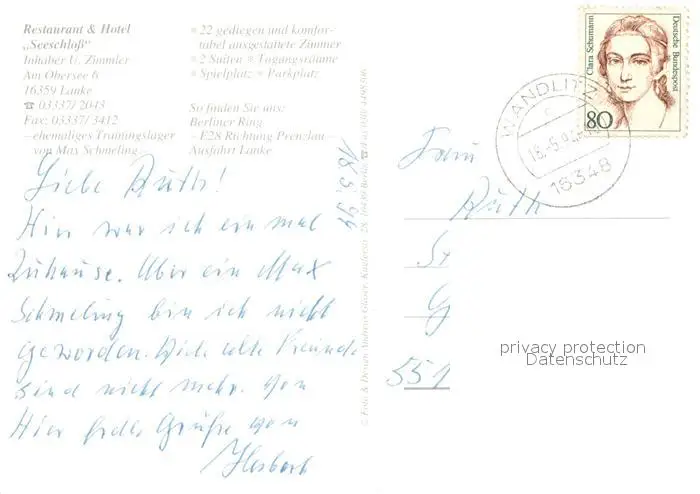 Restaurant & Hotel
„Seeschloß"
Inhaber U. Zimmler
Am Obersee 6
16359 Lanke
☎ 03337/ 2043
Fax: 03337/ 3412
– ehemaliges Trainingslager
von Max Schmeling –
* 22 gediegen und komfor-
tabel ausgestattete Zimmer
* 2 Suiten * Tagungsräume
* Spielplatz * Parkplatz
So finden Sie uns:
Berliner Ring
– E28 Richtung Prenzlau –
Ausfahrt Lanke
Liebe Ruth!
Hier war ich ein mal
Zuhause. Aber ein Max
Schmeling bin ich nicht
geworden. Die alte Freunde
sind nicht mehr. Von
Hier Grüße von
18 5. 94
© Foto & Design
Clara Schumann
Deutsche Bundespost
80
WANDLITZ
16348
Frau
Ruth
St
G
551
privacy protection
Datenschutz